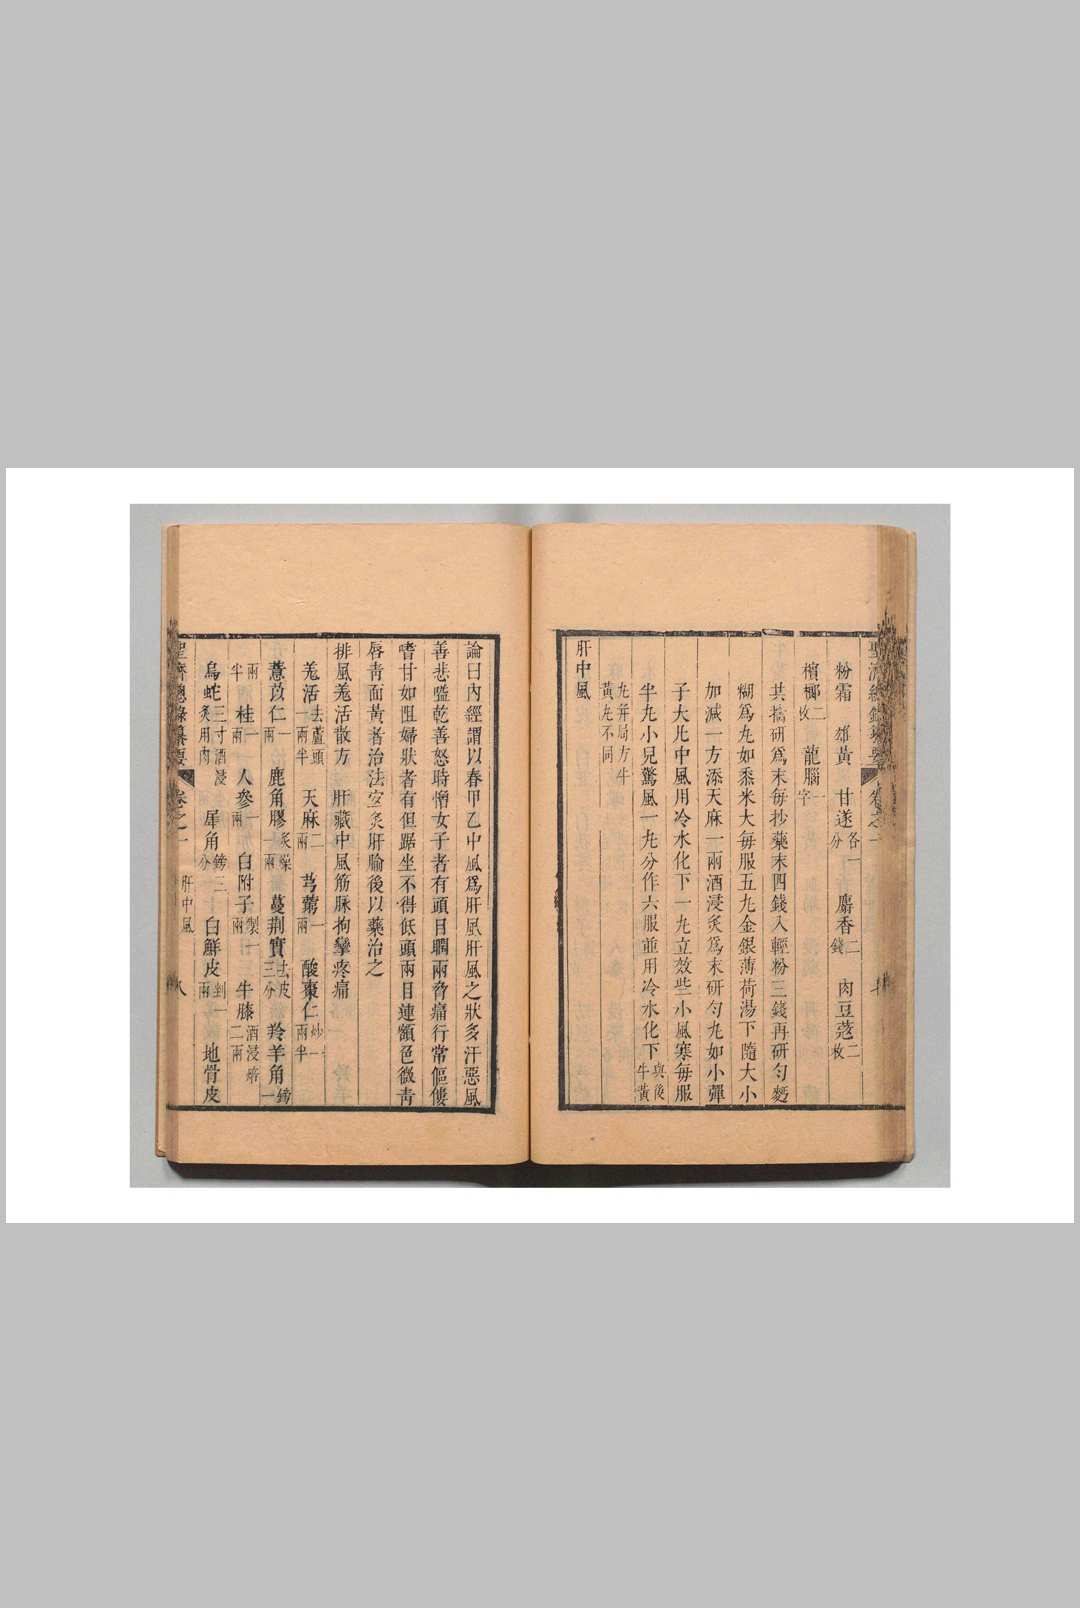 粉霜 雄黃 甘遂各一分 麝香二錢 肉豆蔻二枚
檳榔二枚 龍腦一字
共擣研爲末每抄藥末四錢入輕粉三錢再研勻麪
糊爲丸如黍米大每服五丸金銀薄荷湯下隨大小
加減一方添天麻一兩酒浸炙爲末研勻丸如小彈
子大凡中風用冷水化下一丸立效些小風寒每服
半丸小兒驚風一丸分作六服並用冷水化下與後牛黃
丸并局方牛黃丸不同
肝中風
論曰內經謂以春甲乙中風爲肝風肝風之狀多汗惡風
善悲嗌乾善怒時憎女子者有頭目瞤兩脅痛行常傴僂
嗜甘如阻婦狀者有但踞坐不得低頭兩目連額色微青
唇青面黃者治法宜灸肝腧後以藥治之
排風羗活散方 肝藏中風筋脉拘攣疼痛
羗活去蘆頭一兩半 天麻二兩 芎藭一兩 酸棗仁炒一兩半
薏苡仁一兩 鹿角膠炙燥一兩 蔓荆實去皮三分 羚羊角鎊一
兩半 桂一兩 人參一兩 白附子製一兩 牛膝酒浸焙二兩
烏蛇三寸酒浸炙用肉 犀角鎊三分 白鮮皮剉一兩 地骨皮
聖濟總錄纂要 卷之一 肝中風 八